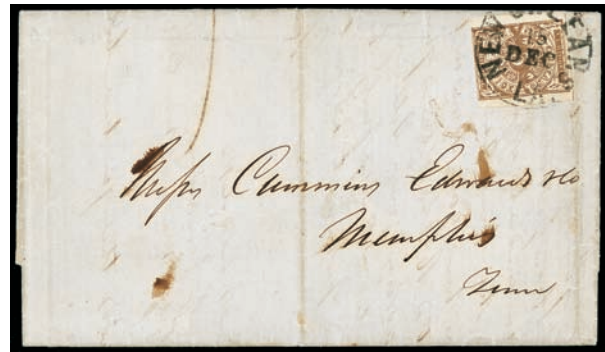 NEW ORLEANS
15
DEC
LA.
Messrs Cummins Edwards & Co
Memphis
Tenn